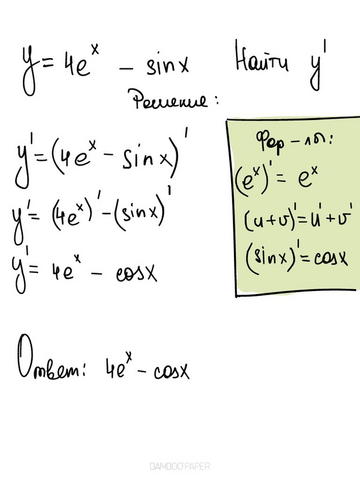 y = 4e^x - sinx Найти y'
Решение:
y' = (4e^x - sinx)'
y' = (4e^x)' - (sinx)'
y' = 4e^x - cosx
Фор-лы:
(e^x)' = e^x
(u+v)' = u' + v'
(sinx)' = cosx
Ответ: 4e^x - cosx
BAMBOO PAPER